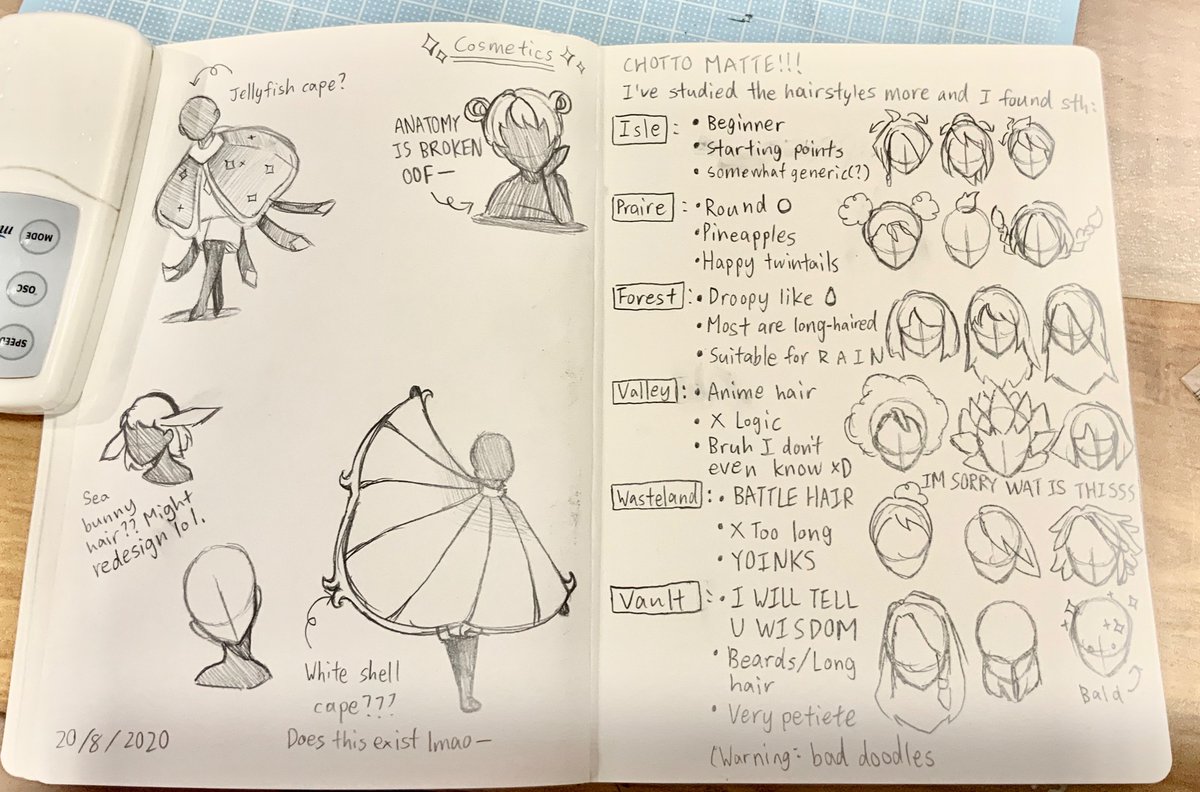 Cosmetics
Jellyfish cape?
ANATOMY
IS BROKEN
OOF—
Sea
bunny
hair?? Might
redesign lol.
White shell
cape???
Does this exist lmao—
20/8/2020
CHOTTO MATTE!!!
I've studied the hairstyles more and I found sth:
Isle: • Beginner
• starting points
• somewhat generic(?)
Praire: • Round O
• Pineapples
• Happy twintails
Forest: • Droopy like
• Most are long-haired
• Suitable for RAIN
Valley: • Anime hair
• X Logic
• Bruh I don't
even know xD
IM SORRY WAT IS THISSS
Wasteland: • BATTLE HAIR
• X Too long
• YOINKS
Vault: • I WILL TELL
U WISDOM
• Beards/Long
hair
• Very petiete
Bald
(Warning: bad doodles
MODE
OSC.
SPEED